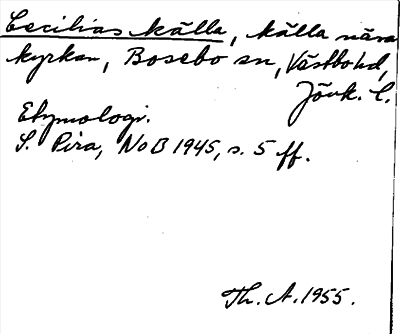 Cecilias källa, källa nära
kyrkan, Bosebo sn, Västbo hd,
Jönk. l.
Etymologi.
S. Pira, NoB 1945, s. 5 ff.
Th. A. 1955.